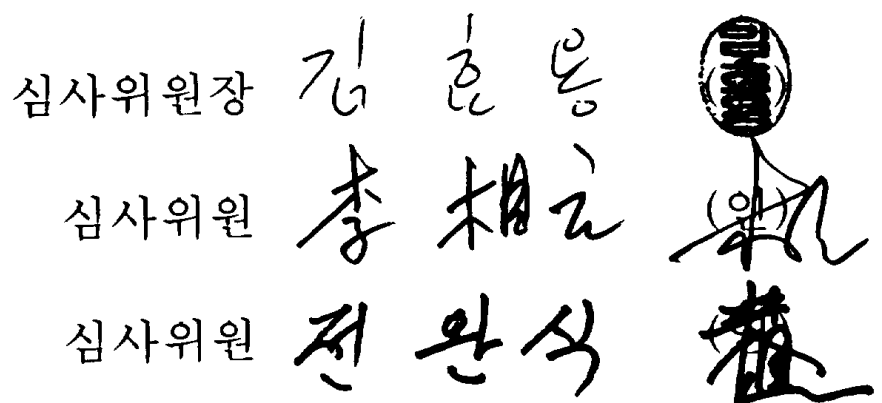 심사위원장 김 훈 용
심사위원 李 相 云 (인)
심사위원 전 완 식